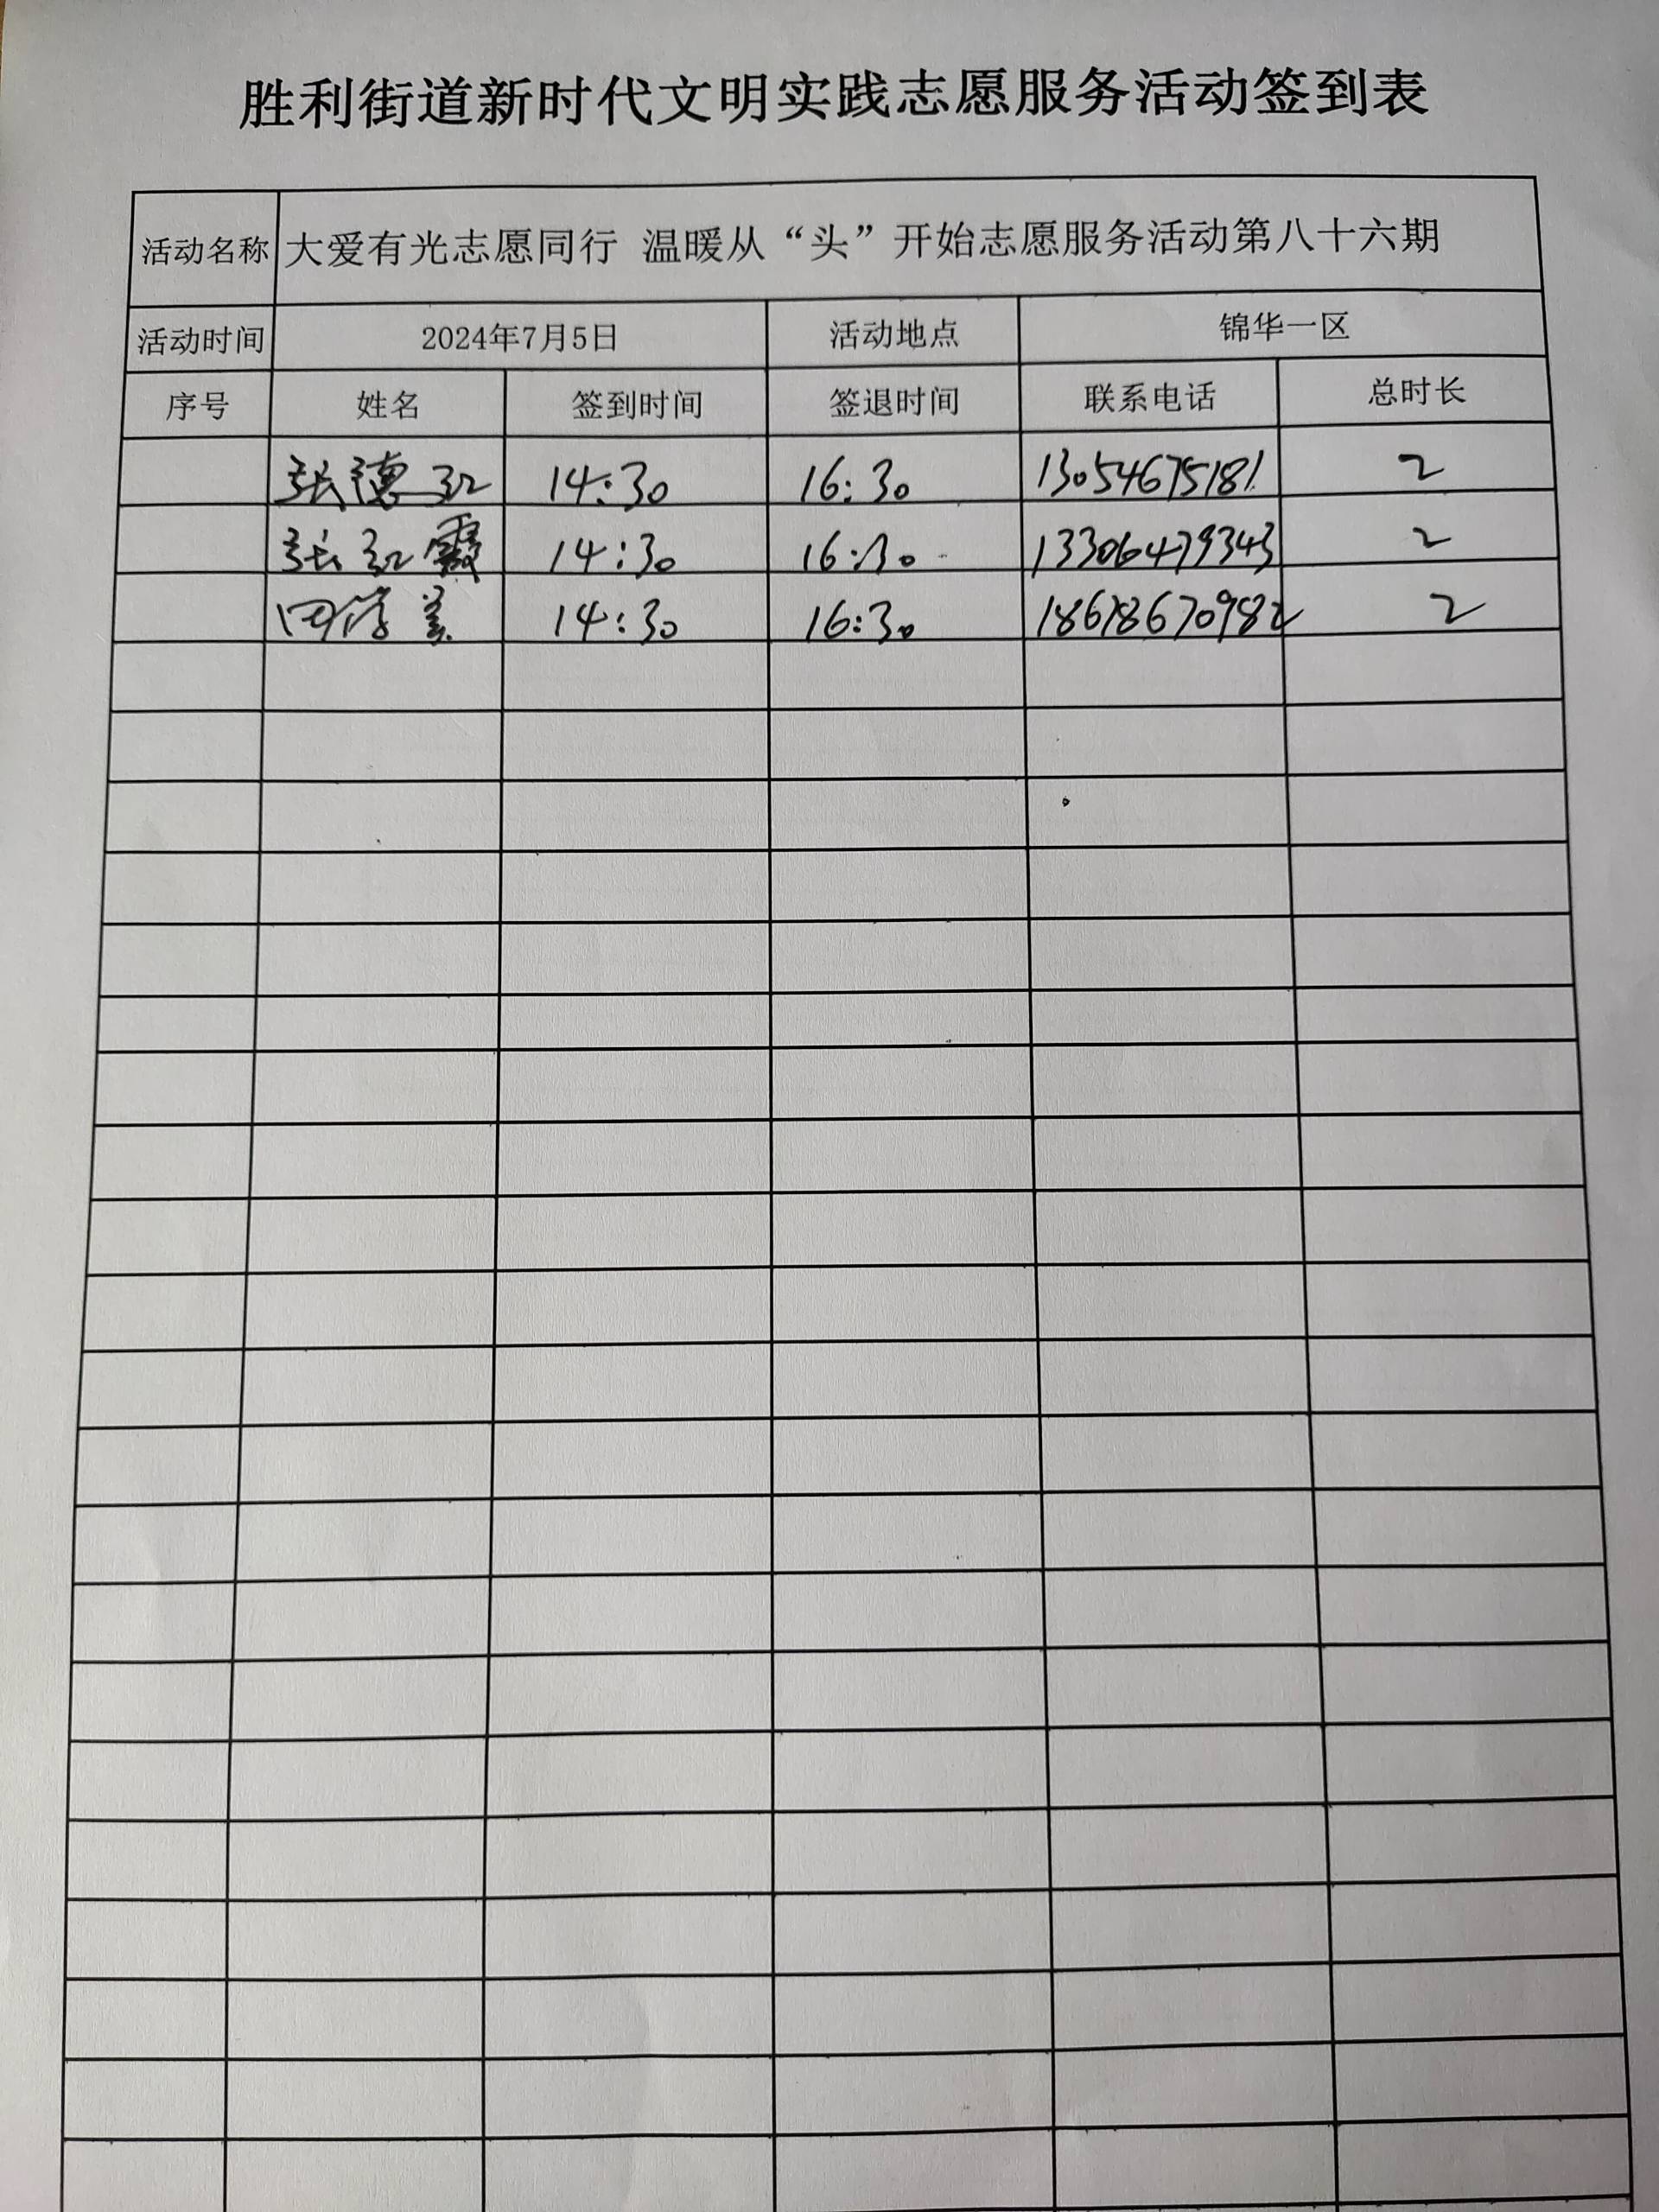 胜利街道新时代文明实践志愿服务活动签到表
活动名称 大爱有光志愿同行 温暖从“头”开始志愿服务活动第八十六期
活动时间 2024年7月5日 活动地点 锦华一区
序号 姓名 签到时间 签退时间 联系电话 总时长
张德红 14:30 16:30 13054675181 2
张红霞 14:30 16:30 13306479343 2
田学美 14:30 16:30 18678670982 2